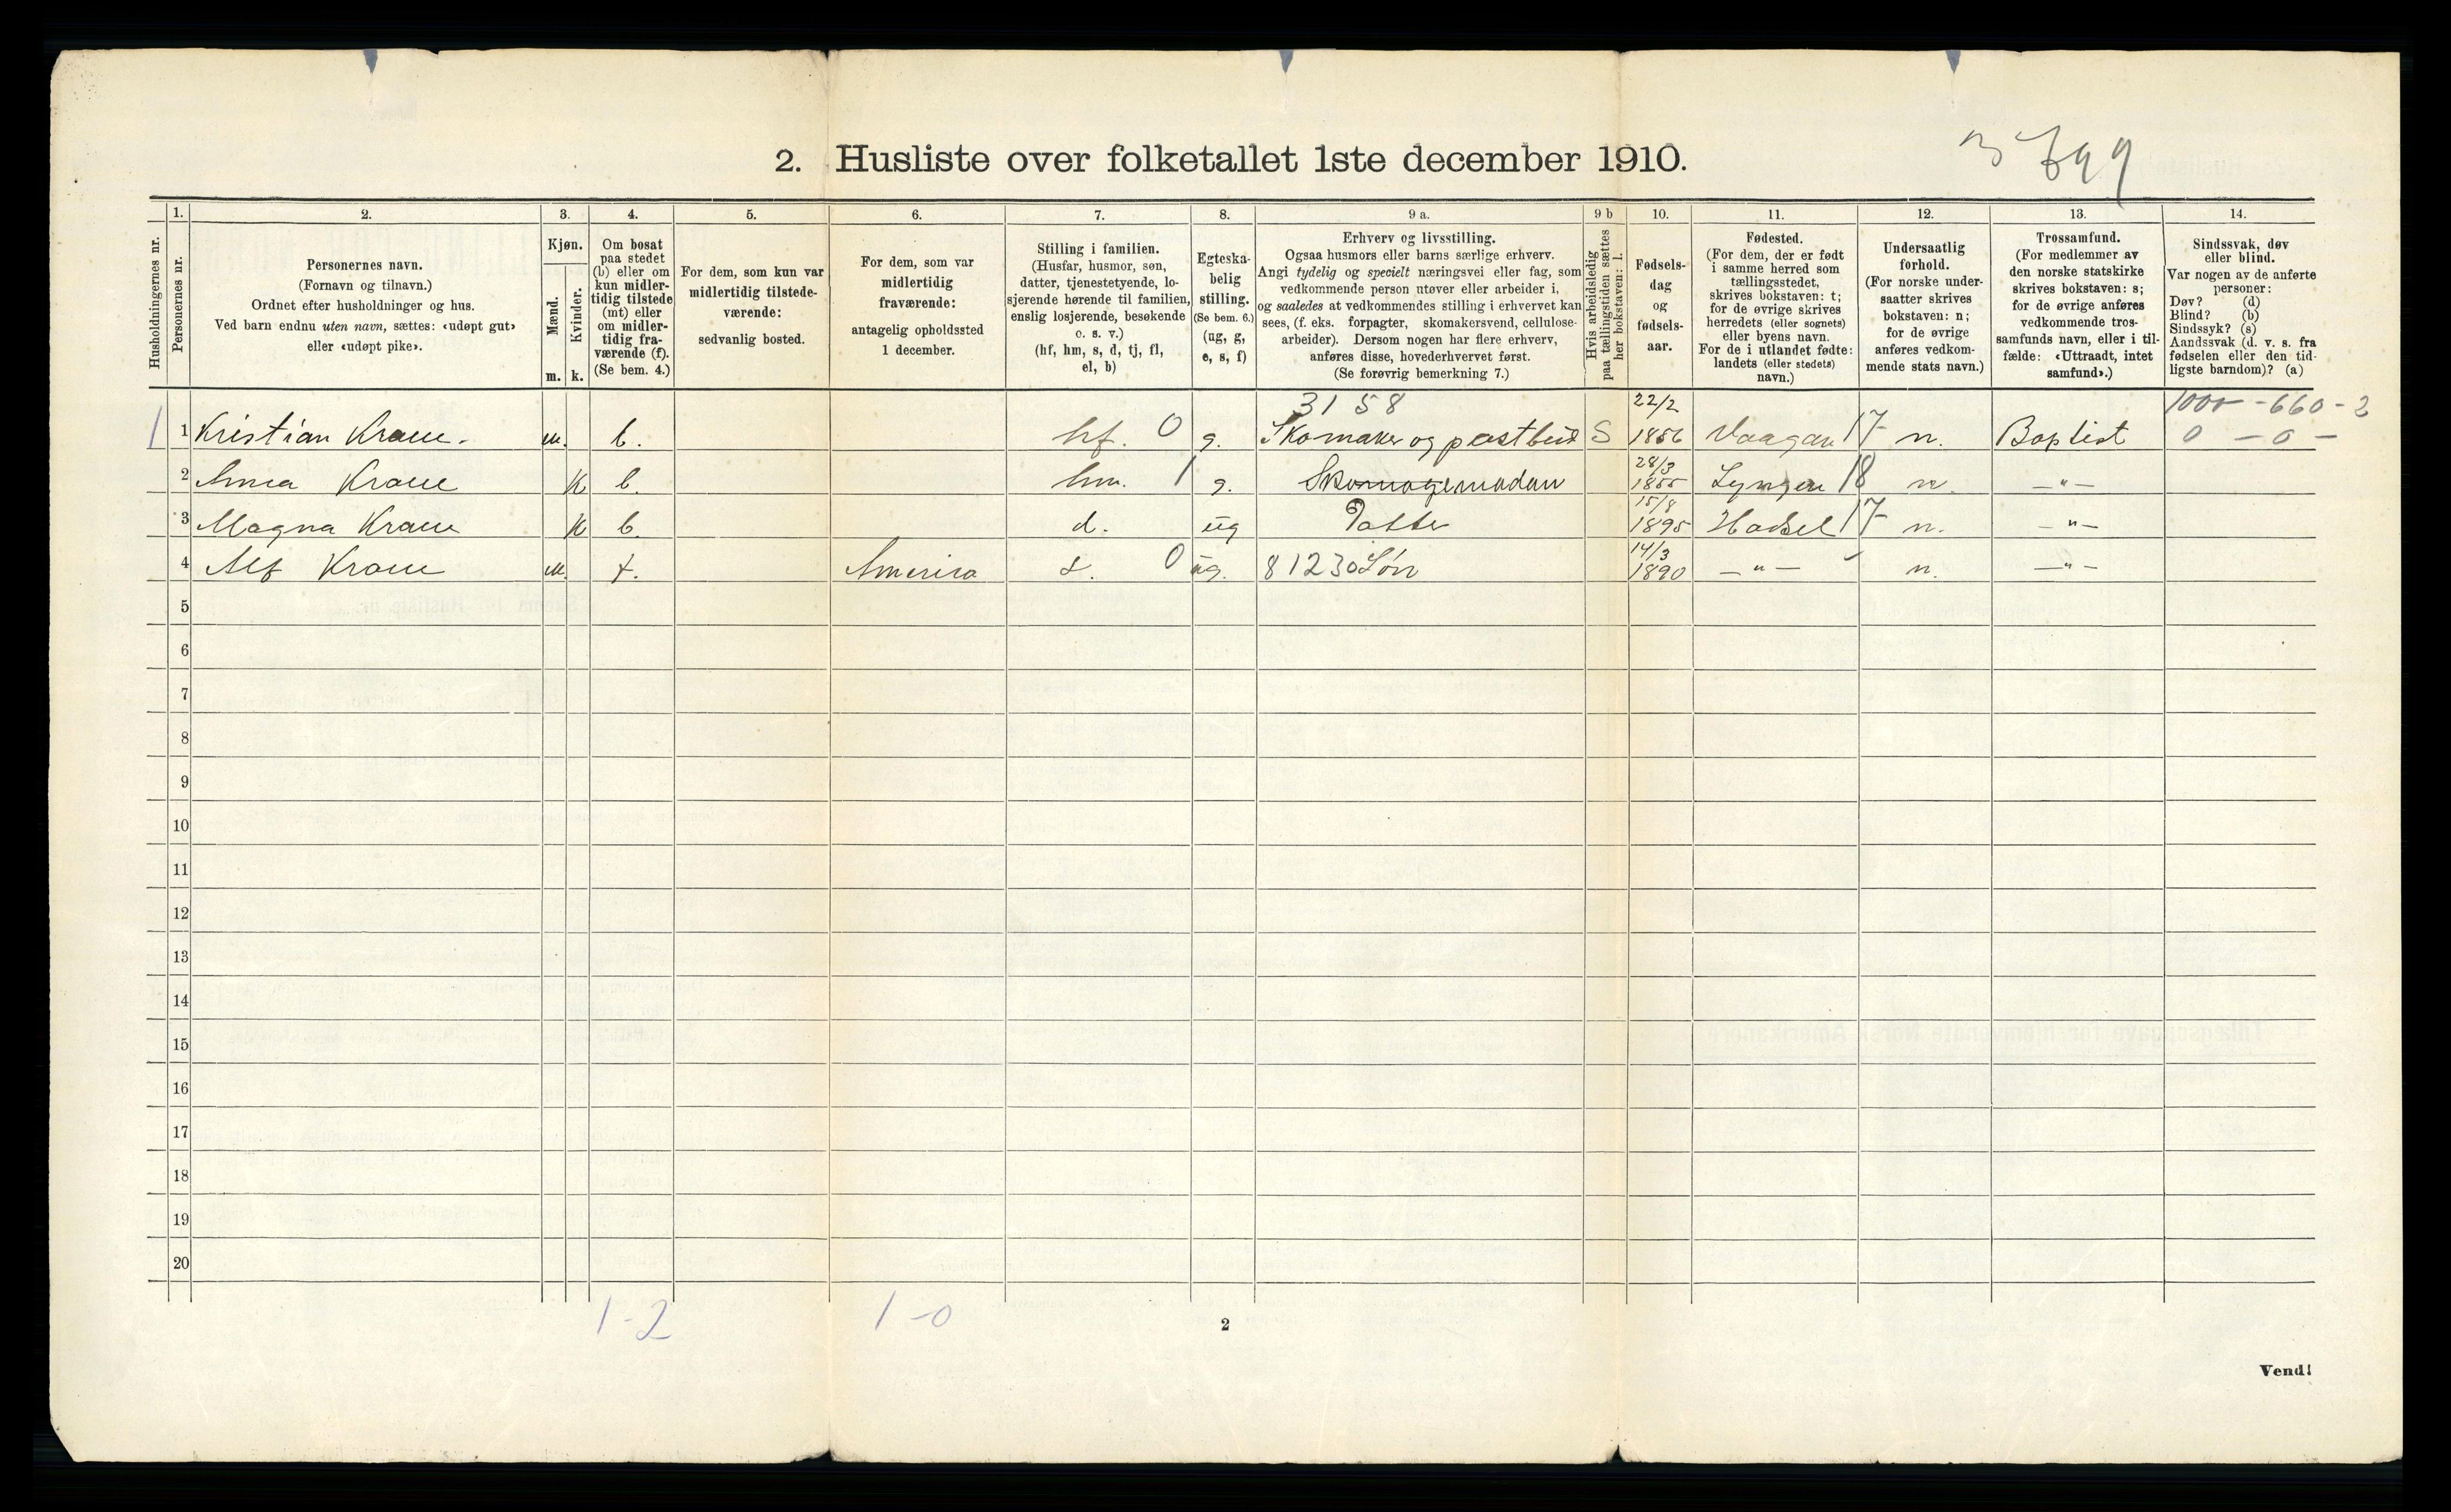 2. Husliste over folketallet 1ste december 1910.
1. 2. 3. 4. 5. 6. 7. 8. 9 a. 9 b 10. 11. 12. 13. 14.
Husholdningernes nr.
Personernes nr.
Personernes navn.
(Fornavn og tilnavn.)
Ordnet efter husholdninger og hus.
Ved barn endnu uten navn, sættes: «udøpt gut»
eller «udøpt pike».
Kjøn.
Mænd.
Kvinder.
m. k.
Om bosat
paa stedet
(b) eller om
kun midler-
tidig tilstede
(mt) eller
om midler-
tidig fra-
værende (f).
(Se bem. 4.)
For dem, som kun var
midlertidig tilstede-
værende:
sedvanlig bosted.
For dem, som var
midlertidig
fraværende:
antagelig opholdssted
1 december.
Stilling i familien.
(Husfar, husmor, søn,
datter, tjenestetyende, lo-
sjerende hørende til familien,
enslig losjerende, besøkende
o. s. v.)
(hf, hm, s, d, tj, fl,
el, b)
Egteska-
belig
stilling.
(Se bem. 6.)
(ug, g,
e, s, f)
Erhverv og livsstilling.
Ogsaa husmors eller barns særlige erhverv.
Angi tydelig og specielt næringsvei eller fag, som
vedkommende person utøver eller arbeider i,
og saaledes at vedkommendes stilling i erhvervet kan
sees, (f. eks. forpagter, skomakersvend, cellulose-
arbeider). Dersom nogen har flere erhverv,
anføres disse, hovederhvervet først.
(Se forøvrig bemerkning 7.)
Hvis arbeidsledig
paa tællingstiden sættes
her bokstaven: l.
Fødsels-
dag
og
fødsels-
aar.
Fødested.
(For dem, der er født
i samme herred som
tællingsstedet,
skrives bokstaven: t;
for de øvrige skrives
herredets (eller sognets)
eller byens navn.
For de i utlandet fødte:
landets (eller stedets)
navn.)
Undersaatlig
forhold.
(For norske under-
saatter skrives
bokstaven: n;
for de øvrige
anføres vedkom-
mende stats navn.)
Trossamfund.
(For medlemmer av
den norske statskirke
skrives bokstaven: s;
for de øvrige anføres
vedkommende tros-
samfunds navn, eller i til-
fælde: «Uttraadt, intet
samfund».)
Sindssvak, døv
eller blind.
Var nogen av de anførte
personer:
Døv? (d)
Blind? (b)
Sindssyk? (s)
Aandssvak (d. v. s. fra
fødselen eller den tid-
ligste barndom)? (a)
3158 22/2 1000 - 660 - 2
1 1 Kristian Krane. m. b. hf. 0 g. Skomaker og postbud S 1856 Vaagan 17 n. Baptist 0 - 0 -
28/3
2 Anna Krane K b. hm. 1 g. Skomagemadam 1855 Lyngen 18 n. — " —
15/8
3 Magna Krane K b. d. ug Datter 1895 Hadsel 17 n. — " —
14/3
4 Alf Krane M. f. America s. 0 ug. 81230 Søn 1890 — " — n. — " —
5
6
7
8
9
10
11
12
13
14
15
16
17
18
19
20
1-2 1-0
2
Vend!